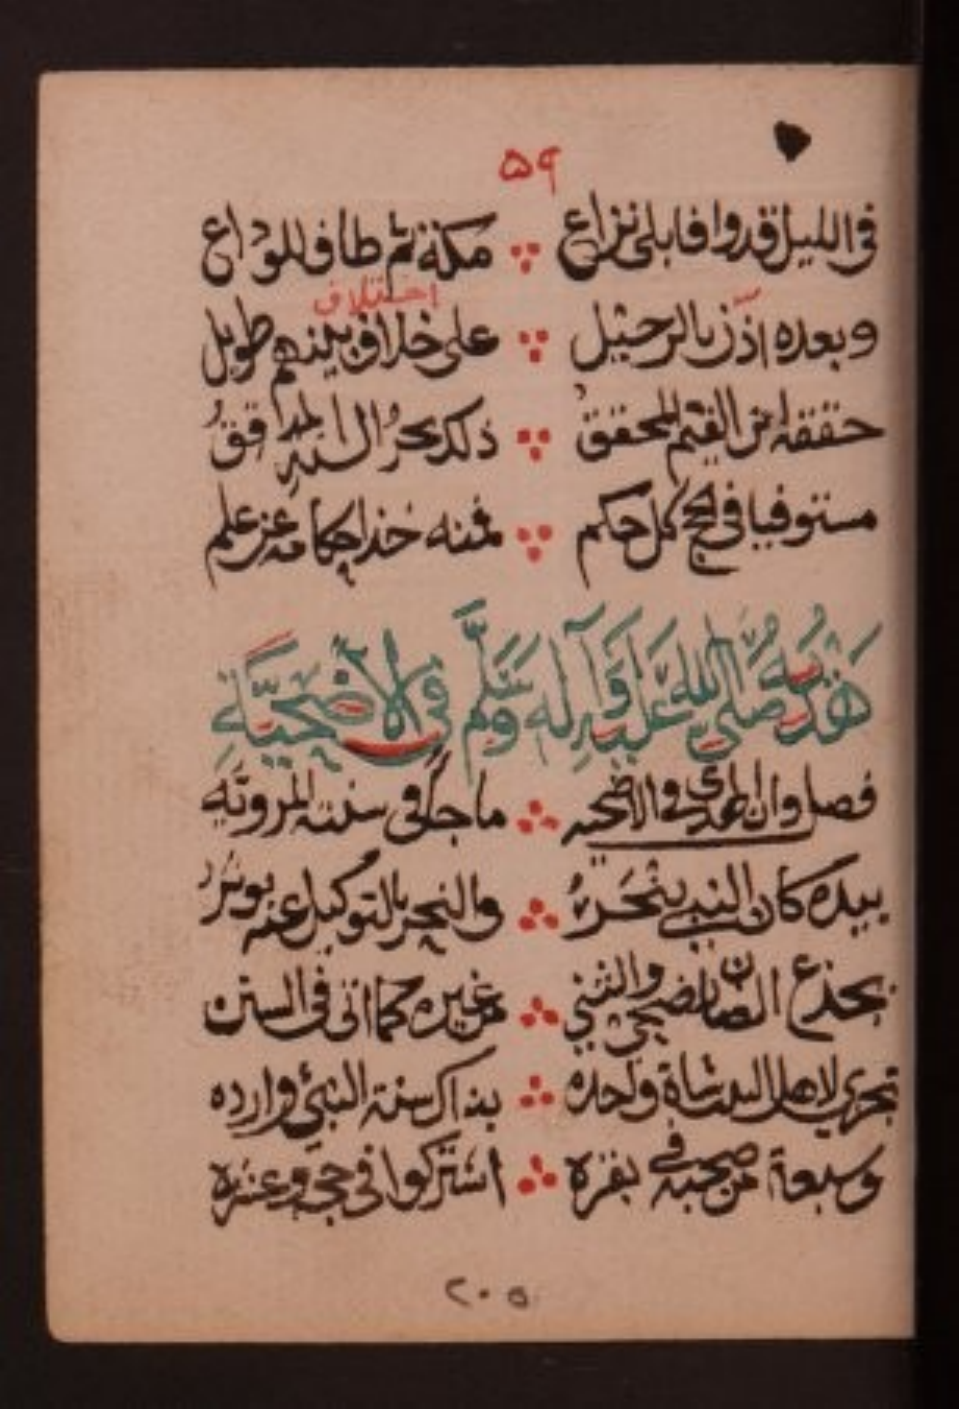 ٥٩
في الليل قد وافا بلى نزاع مكة ثم طاف للوداع
اختلاف
وبعده اذن بالرحيل على خلاف بينهم طويل
حققه ابن القيم المحقق ذلك بحر السنة المدافق
مستوفيا في الحج كل حكم فمنه خذ احكامه عن علم
هديه صلى الله عليه وآله وسلم في الأضحية
فصل وان الهدي والاضحيه ما جا في سنته المرويه
بيده كان النبي ينحر والنحر بالتوكيل عنه يوثر
بجذع الضان لضحي والثني من غيره كما اتى في السنن
تجزي لاهل البيت شاة واحده بذاك سنة النبي وارده
وسبعة من صحبه في بقره اشتركوا في حجه وعمره
٢٠٥